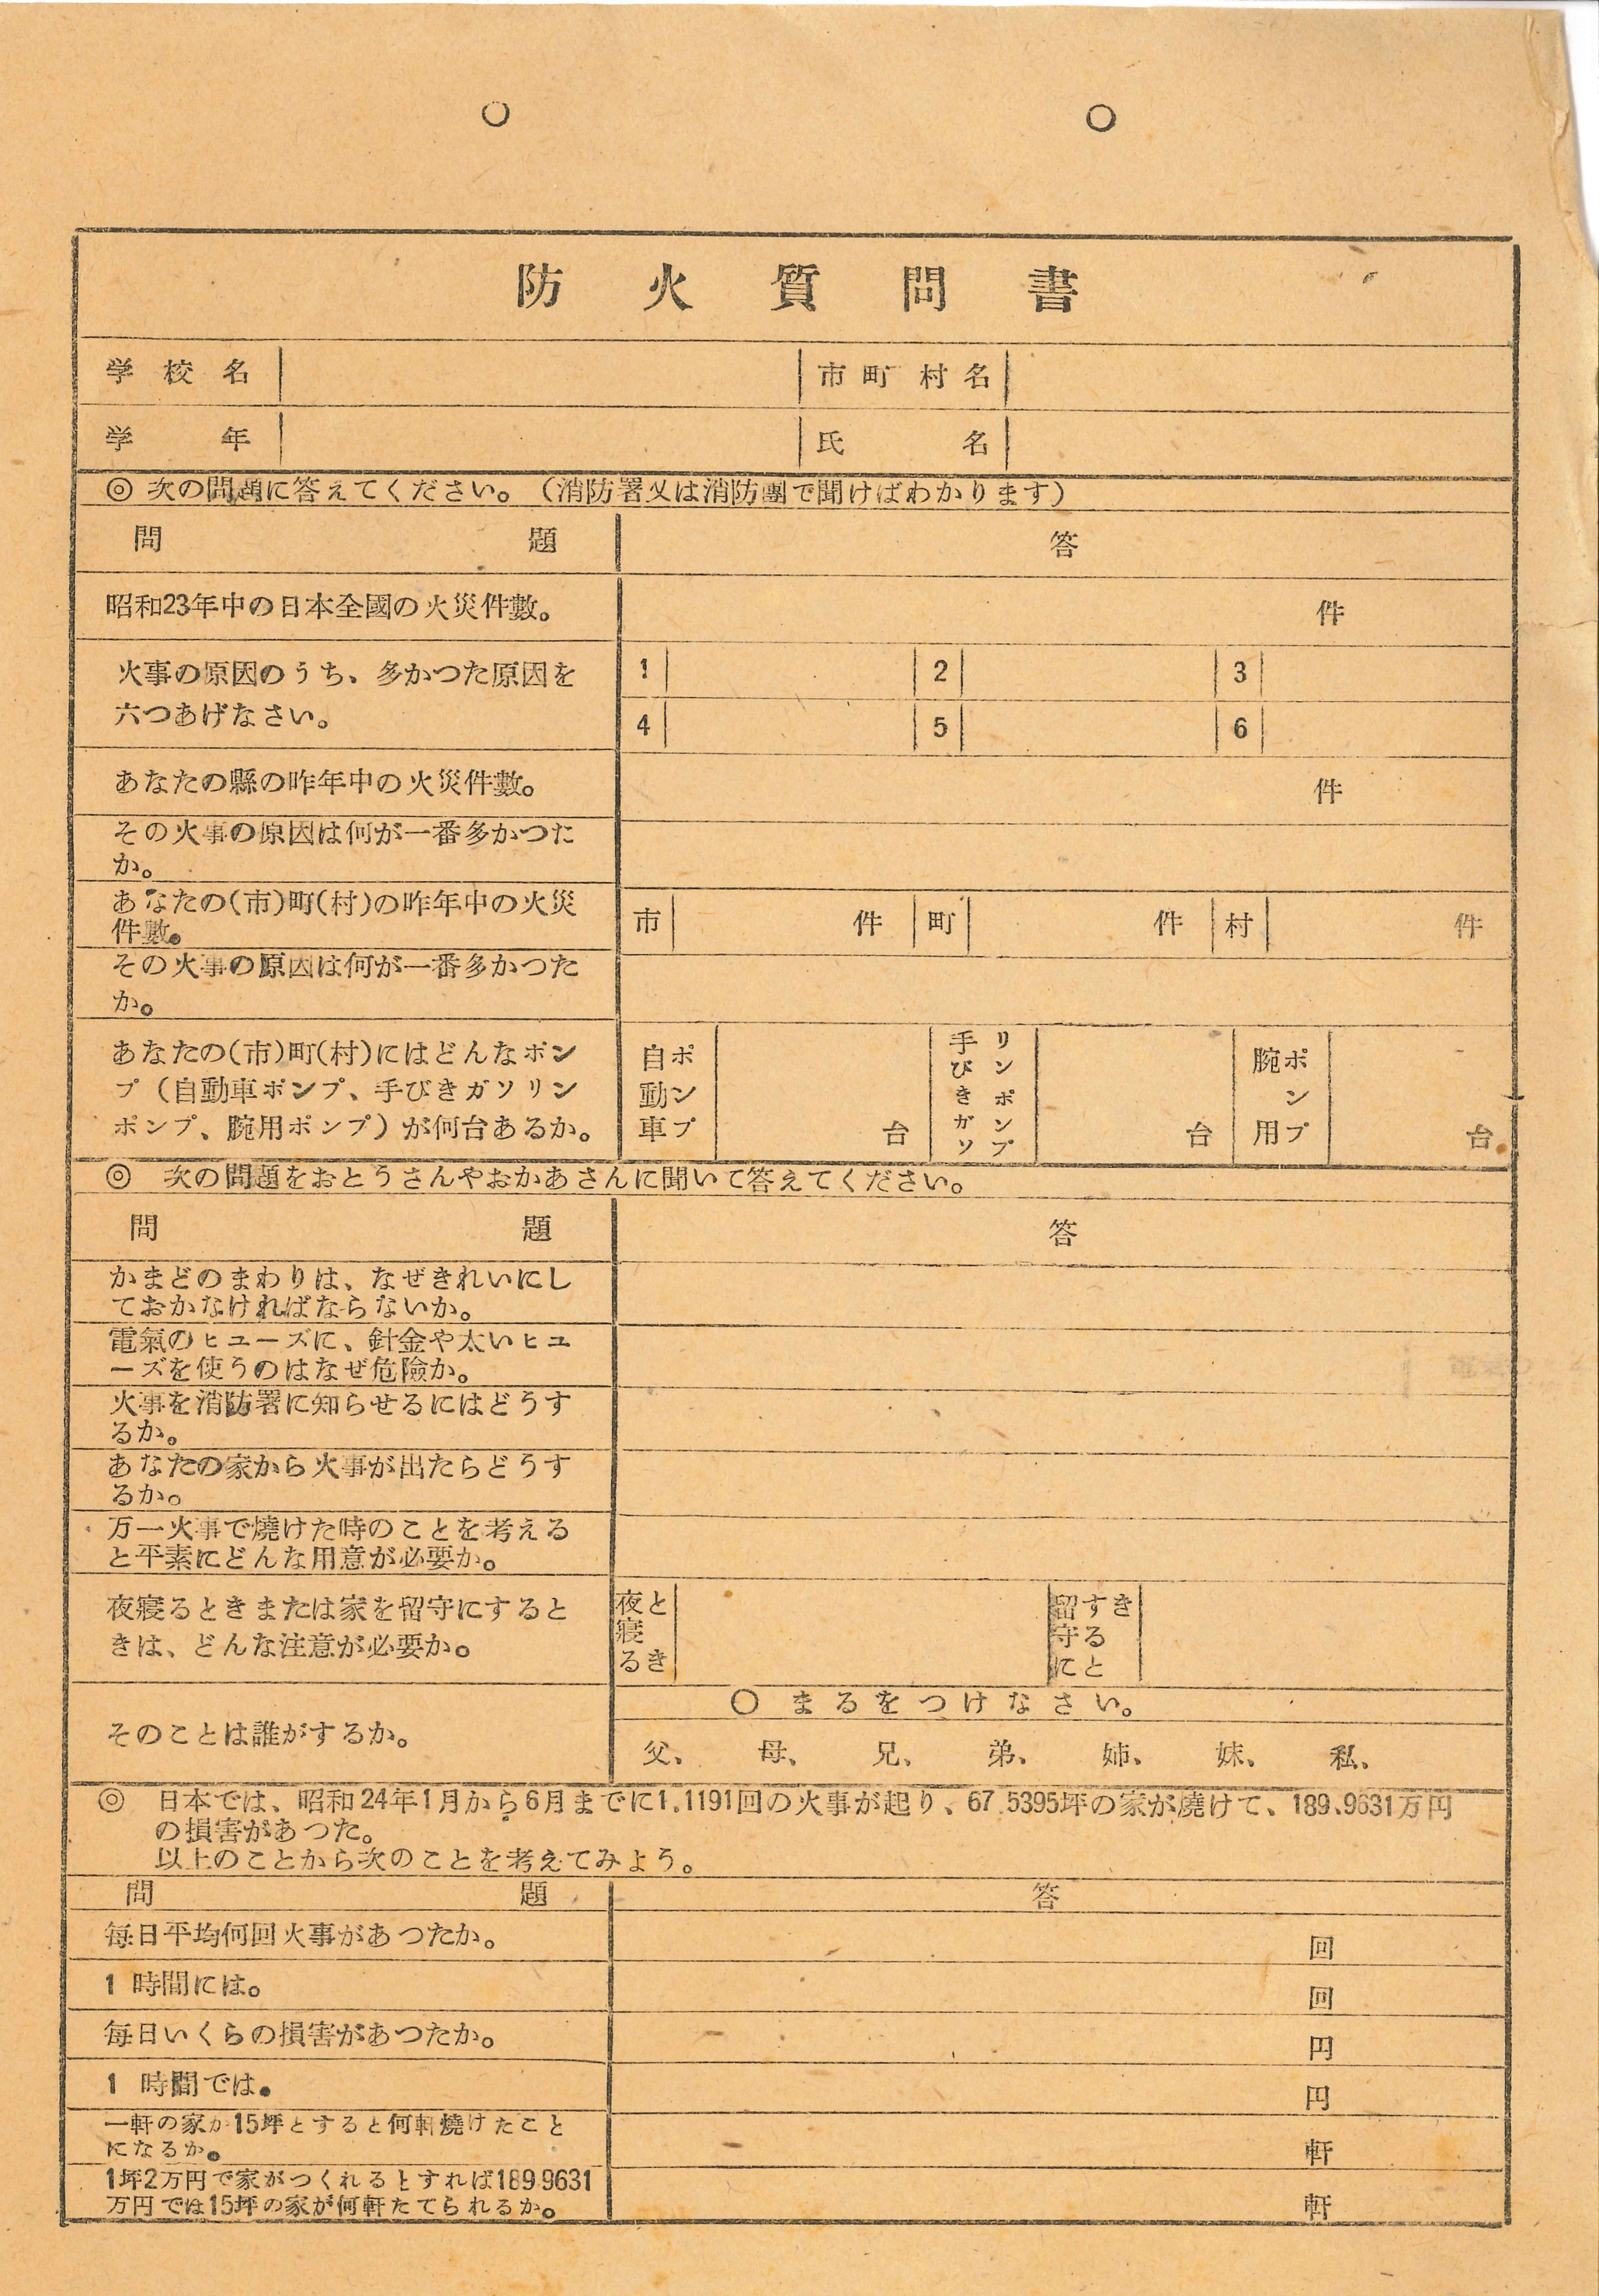 防火質問書
学校名 市町村名
学年 氏名
◎ 次の問題に答えてください。（消防署又は消防團で聞けばわかります）
問題 答
昭和23年中の日本全國の火災件數。 件
火事の原因のうち、多かつた原因を
六つあげなさい。
1 2 3
4 5 6
あなたの縣の昨年中の火災件數。 件
その火事の原因は何が一番多かつた
か。
あなたの(市)町(村)の昨年中の火災
件數。
市 件 町 件 村 件
その火事の原因は何が一番多かつた
か。
あなたの(市)町(村)にはどんなポン
プ（自動車ポンプ、手びきガソリン
ポンプ、腕用ポンプ）が何台あるか。
自動車ポンプ 台 手びきガソリンポンプ 台 腕用ポンプ 台
◎ 次の問題をおとうさんやおかあさんに聞いて答えてください。
問題 答
かまどのまわりは、なぜきれいにし
ておかなければならないか。
電氣のヒユーズに、針金や太いヒユ
ーズを使うのはなぜ危險か。
火事を消防署に知らせるにはどうす
るか。
あなたの家から火事が出たらどうす
るか。
万一火事で燒けた時のことを考える
と平素にどんな用意が必要か。
夜寢るときまたは家を留守にすると
きは、どんな注意が必要か。
夜寢るとき 留守にするとき
そのことは誰がするか。
○ まるをつけなさい。
父、 母、 兄、 弟、 姉、 妹、 私、
◎ 日本では、昭和24年1月から6月までに1.1191回の火事が起り、67.5395坪の家が燒けて、189.9631万円
の損害があつた。
以上のことから次のことを考えてみよう。
問題 答
毎日平均何回火事があつたか。 回
1 時間には。 回
毎日いくらの損害があつたか。 円
1 時間では。 円
一軒の家が15坪とすると何軒燒けたこと
になるか。 軒
1坪2万円で家がつくれるとすれば189.9631
万円では15坪の家が何軒たてられるか。 軒